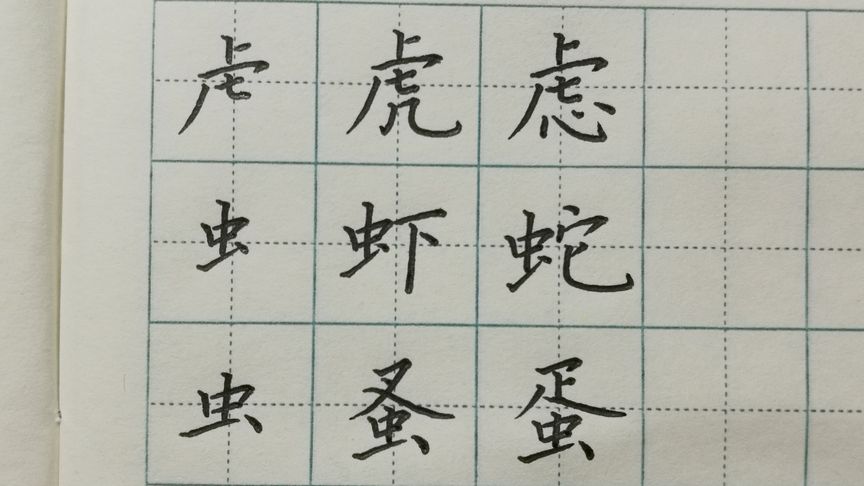 虍虎虑
虫虾蛇
虫蚤蛋